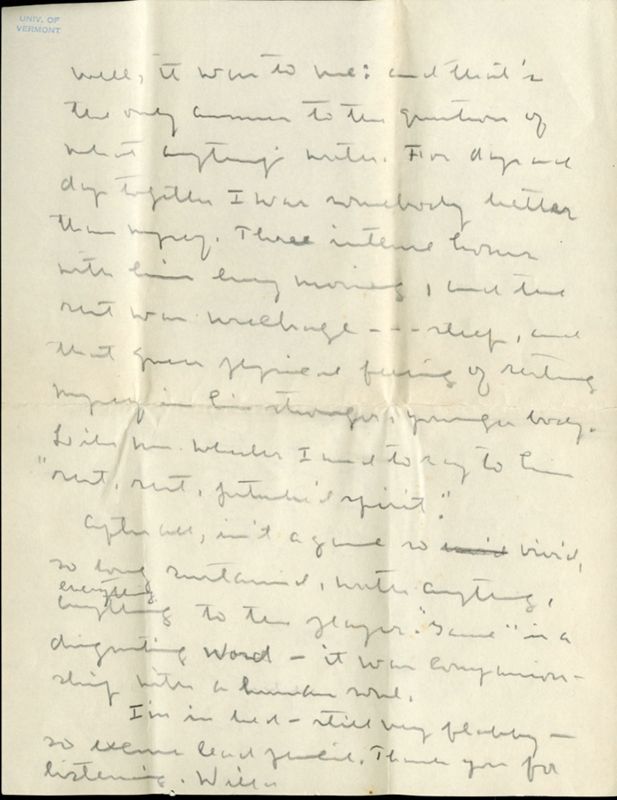 UNIV. OF
VERMONT
well, it was to me: and that's
the only answer to the question of
what anything's worth. For days and
days together I was somebody better
than myself. Three intense hours
with him every morning, and the
rest was wreckage --- sleep, and
that queer physical feeling of resting
myself in his stronger, younger body.
Lides me. Whiles I used to say to him
"rest, rest, perturbèd spirit".
After all, isn't a game so vivid,
so long sustained, worth anything,
everything
anything to the player. "Game" is a
disgusting word – it was companion-
ship with a human soul.
I'm in bed – still very flabby –
so excuse lead pencil. Thank you for
listening. Willa